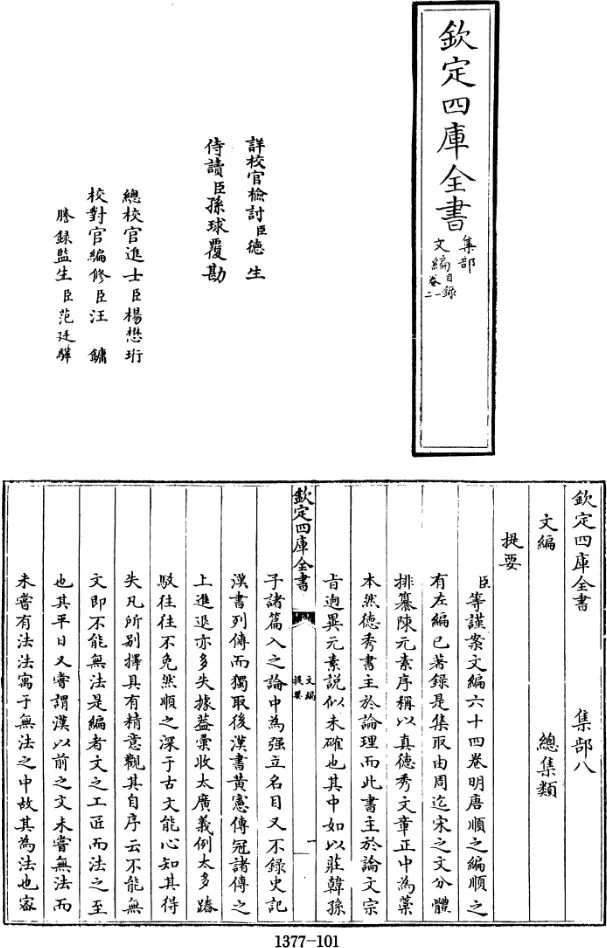 欽定四庫全書
集部
文編目錄
卷一
二
詳校官檢討臣德生
侍讀臣孫球覆勘
總校官進士臣楊懋珩
校對官編修臣汪鏞
謄錄監生臣范廷驊
欽定四庫全書 集部八
文編 總集類
提要
臣等謹案文編六十四卷明唐順之編順之
有左編已著錄是集取由周迄宋之文分體
排纂陳元素序稱以真德秀文章正中為藁
本然德秀書主於論理而此書主於論文宗
旨迥異元素說似未確也其中如以莊韓孫
欽定四庫全書
文編
提要
一
子諸篇入之論中為强立名目又不錄史記
漢書列傳而獨取後漢書黃憲傳冠諸傳之
上進退亦多失據蓋彚收太廣義例太多踳
駁往往不免然順之深于古文能心知其得
失凡所别擇具有精意觀其自序云不能無
文即不能無法是編者文之工匠而法之至
也其平日又嘗謂漢以前之文未嘗無法而
未嘗有法法寓于無法之中故其為法也密
1377-101